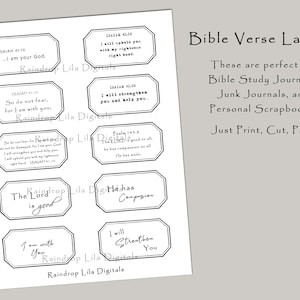 ISAIAH 41:10
...I am your God.
ISAIAH 41:10
I will uphold you
with my righteous
right hand.
Raindrop Lila Digitals
So do not fear,
for I am with you.
ISAIAH 41:10
I will strengthen
you and help you...
Psalm 145:9
The Lord
is good
He has
Compassion
Raindrop Lila Digitals
I am with
You
I will
Strengthen
You
Raindrop Lila Digitals
Raindrop Lila Digitals
Bible Verse La
These are perfect
Bible Study Journ
Junk Journals, an
Personal Scrapboo
Just Print, Cut, P